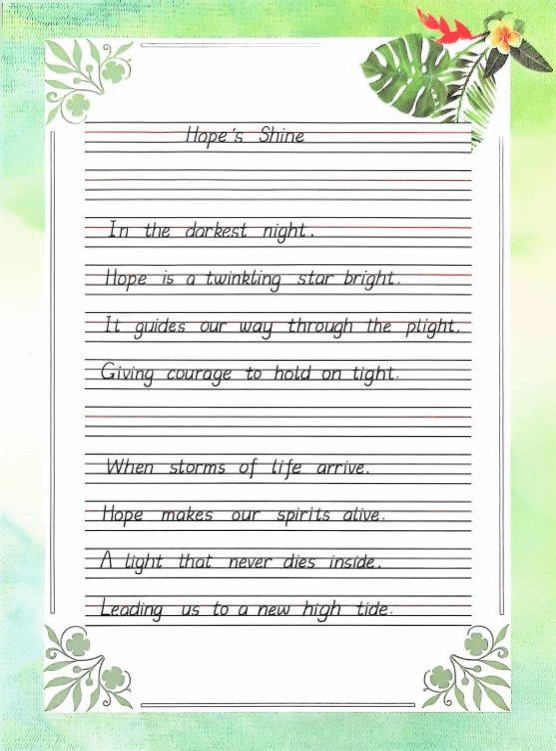 Hope's Shine
In the darkest night.
Hope is a twinkling star bright.
It guides our way through the plight.
Giving courage to hold on tight.
When storms of life arrive.
Hope makes our spirits alive.
A light that never dies inside.
Leading us to a new high tide.